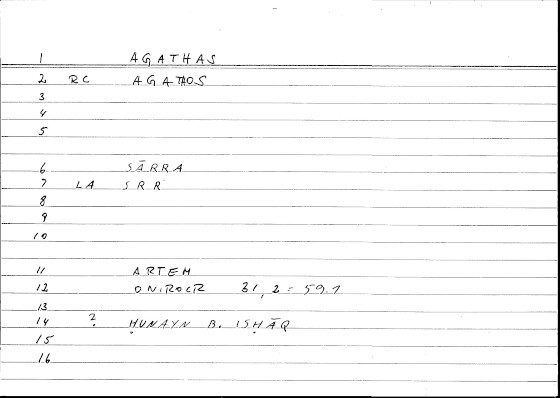 1 AGATHAS
2 RC AGATHOS
3
4
5
6 SĀRRA
7 LA SRR
8
9
10
11 ARTEM
12 ONIROCR 31,2 = 59.1
13
14 ? ḤUNAYN B. ISḤĀQ
15
16